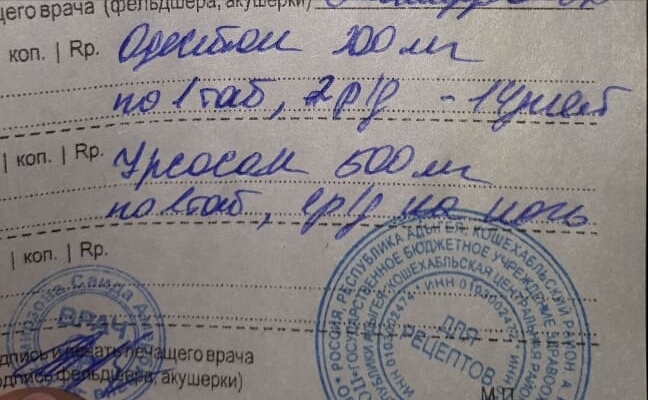 щего врача (фельдшера, акушерки)
коп. | Rp. Одестон 200 мг
по 1 таб, 2 р/д - 14 дней
| коп. | Rp. Урсосан 500 мг
по 1 таб, 1 р/д на ночь
| коп. | Rp.
ВРАЧ
дпись и печать лечащего врача
одпись фельдшера, акушерки)
РОССИЯ, РЕСПУБЛИКА АДЫГЕЯ, КОШЕХАБЛЬСКИЙ РАЙОН
ГОСУДАРСТВЕННОЕ БЮДЖЕТНОЕ УЧРЕЖДЕНИЕ ЗДРАВООХ
КОШЕХАБЛЬСКАЯ ЦЕНТРАЛЬНАЯ
ДЛЯ
РЕЦЕПТОВ
М.П.